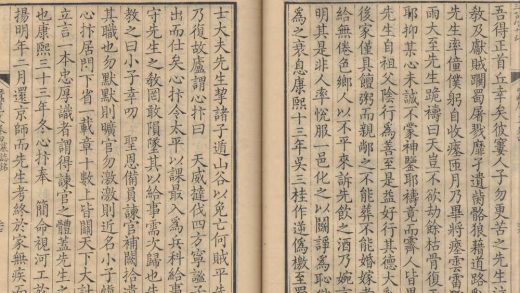 吾得正首丘幸矣彼寠人子勿更苦之先生
教及獻賊躪蜀屠戮靡孑遺骼狼藉道路
先生率僮僕躬自收瘞匝月乃畢將瘞雲雷
雨大至先生跪禱曰天豈不欲劫餘枯骨復
耶抑其心未誠不蒙神鑒耶禱竟而霽人皆
先生自祖父陰行為善至是益好行其德大
後家僅具饘粥而親鄰之不能葬不能婚嫁
給無倦色鄉人以不平來訴先飲之酒乃婉言
明其是非人率悅服一邑化之以鬬譁為恥
為之衰息康熙十三年吳三桂作逆偽檄至蜀
士大夫先生挈諸子遁山谷以免亡何賊平
乃復故廬謂心抃曰　天威撻伐四方寧謐
出而仕矣心抃令太平以課最入為兵科給事
守先生之敎罔敢隕墜其以給事雲次歸也
教之曰小子幸叨　聖恩備員諫官補闕拾遺
其職也勿默默則曠官勿激激則近名小子慎
心抃居門下省一載章十數上皆關天下大計
立言一本忠厚識者謂得諫官之體蓋先生之
也康熙三十三年冬心抃奉　簡命視河工於
揚明年二月還京師而先生考終於家無疾而